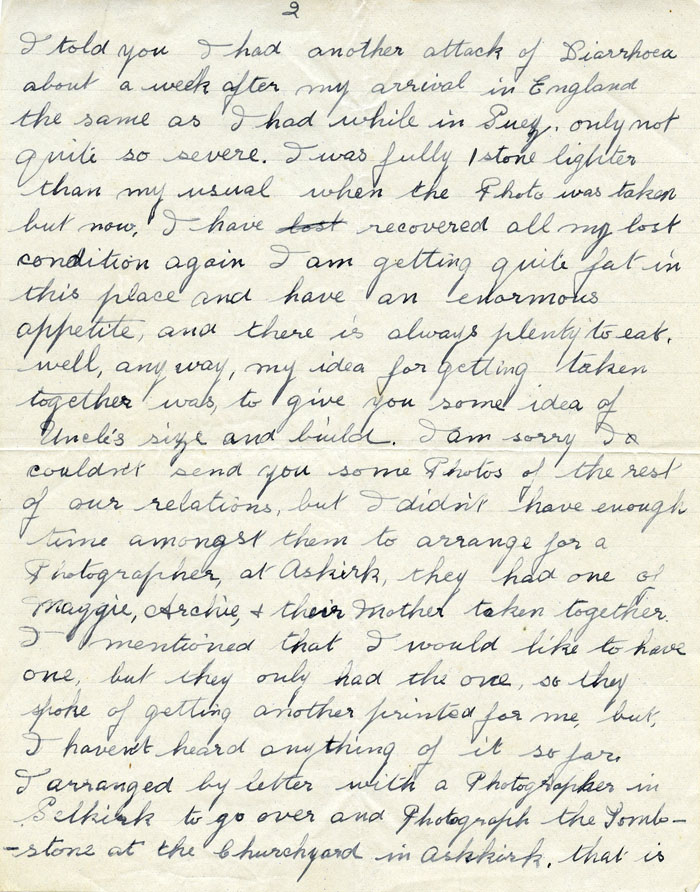 2
I told you I had another attack of Diarrhoea
about a week after my arrival in England
the same as I had while in Suez. only not
quite so severe. I was fully 1 stone lighter
than my usual when the Photo was taken
but now, I have lost recovered all my lost
condition again I am getting quite fat in
this place and have an enormous
appetite, and there is always plenty to eat.
well, any way, my idea for getting taken
together was, to give you some idea of
Uncle's size and build. I am sorry I
couldn't send you some Photos of the rest
of our relations, but I didn't have enough
time amongst them to arrange for a
Photographer, at Askirk, they had one of
Maggie, Archie, & their Mother taken together.
I mentioned that I would like to have
one, but they only had the one, so they
spoke of getting another printed for me, but,
I haven't heard anything of it so far,
I arranged by letter with a Photographer in
Selkirk to go over and Photograph the Tomb-
-stone at the Churchyard in Askkirk. that is